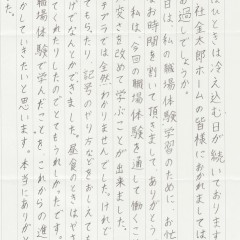 はときは冷え込む日が続いております
社金太郎ホームの皆様におかれましては
過しでしょうか。
日は、私の職場体験学習のために、お忙
なお時間を割いて頂きましてありがとう
私は、今回の職場体験を通して働くこ
変さを改めて学ぶことが出来ました。
テプラでは全然わかりませんでした。けれど
てもらたり、記号のやり方などをおしえても
けでなんとかできました。昼食のときはやさ
てくれたりしたのでとてもうれかったです。
職場体験で学んだことを、これからの進
かしていきたいと思います。本当にありがと
た。